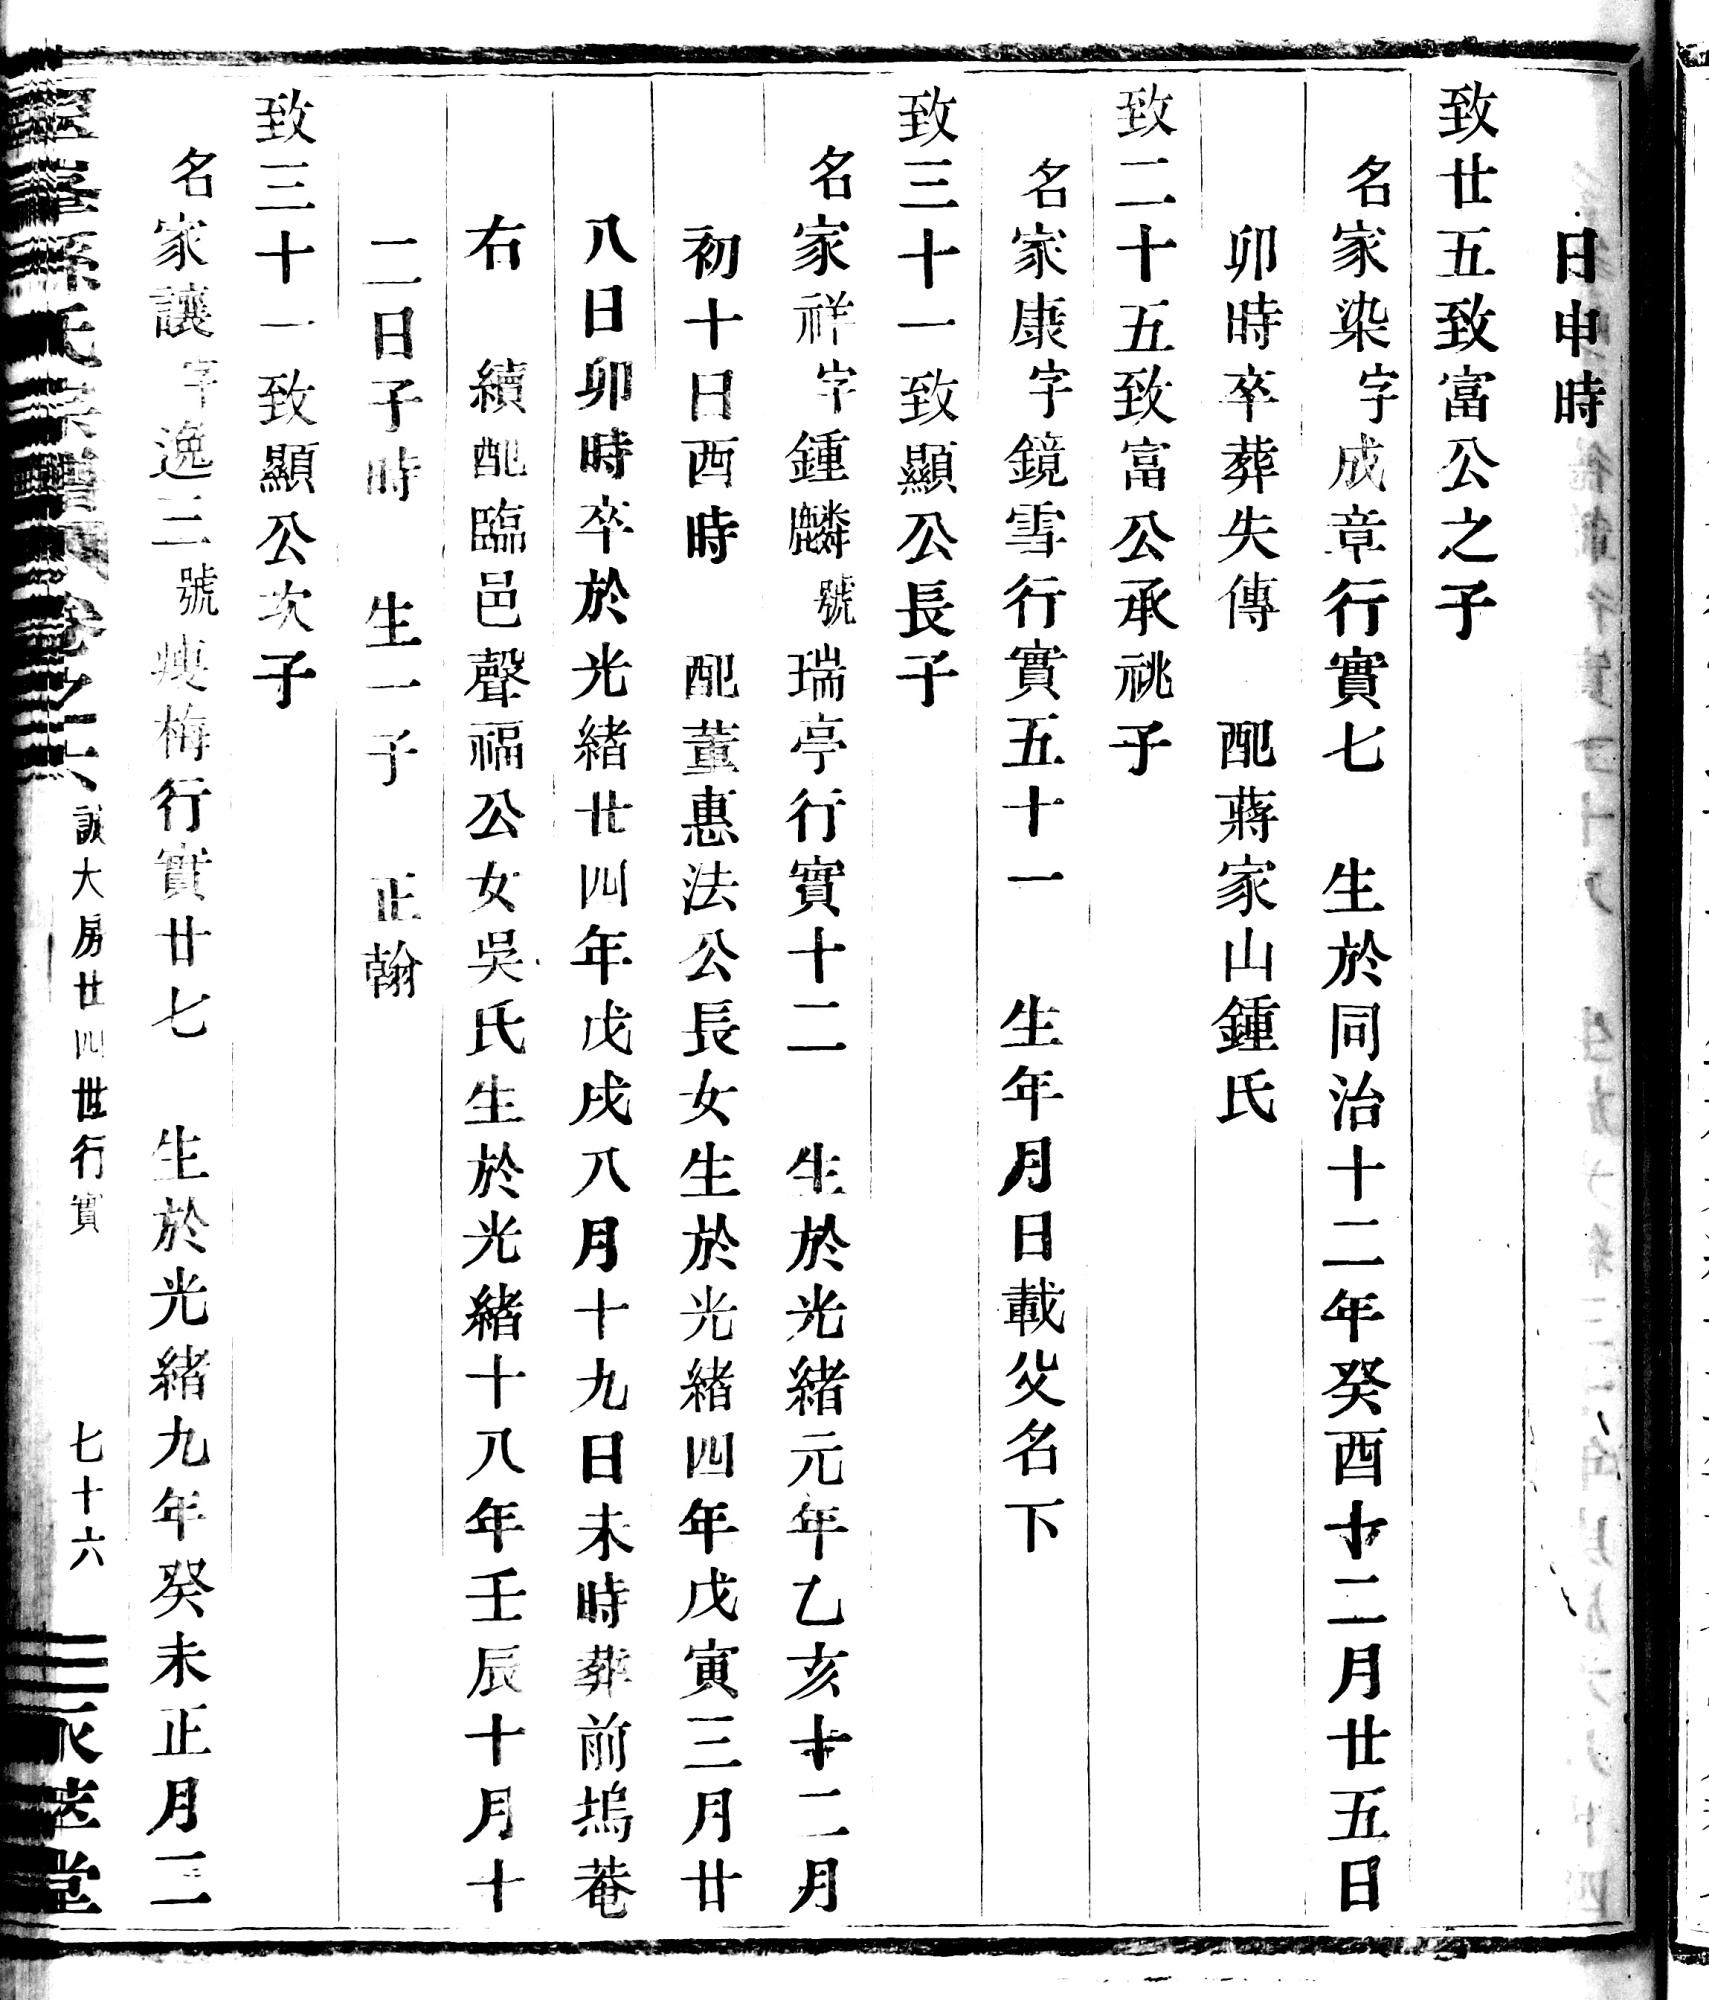 日申時
致廿五致富公之子
名家染字成章行實七　生於同治十二年癸酉十二月廿五日
卯時卒葬失傳　配蔣家山鍾氏
致二十五致富公承祧子
名家康字鏡雪行實五十一　生年月日載父名下
致三十一致顯公長子
名家祥字鍾麟號瑞亭行實十二　生於光緒元年乙亥十二月
初十日酉時　配董惠法公長女生於光緒四年戊寅三月廿
八日卯時卒於光緒廿四年戊戌八月十九日未時葬前塢菴
右　續配臨邑聲福公女吳氏生於光緒十八年壬辰十月十
二日子時　生一子　正翰
致三十一致顯公次子
名家讓字逸三號瘦梅行實廿七　生於光緒九年癸未正月二
孫氏宗譜卷之六　誠大房廿四世行實　七十六　堂